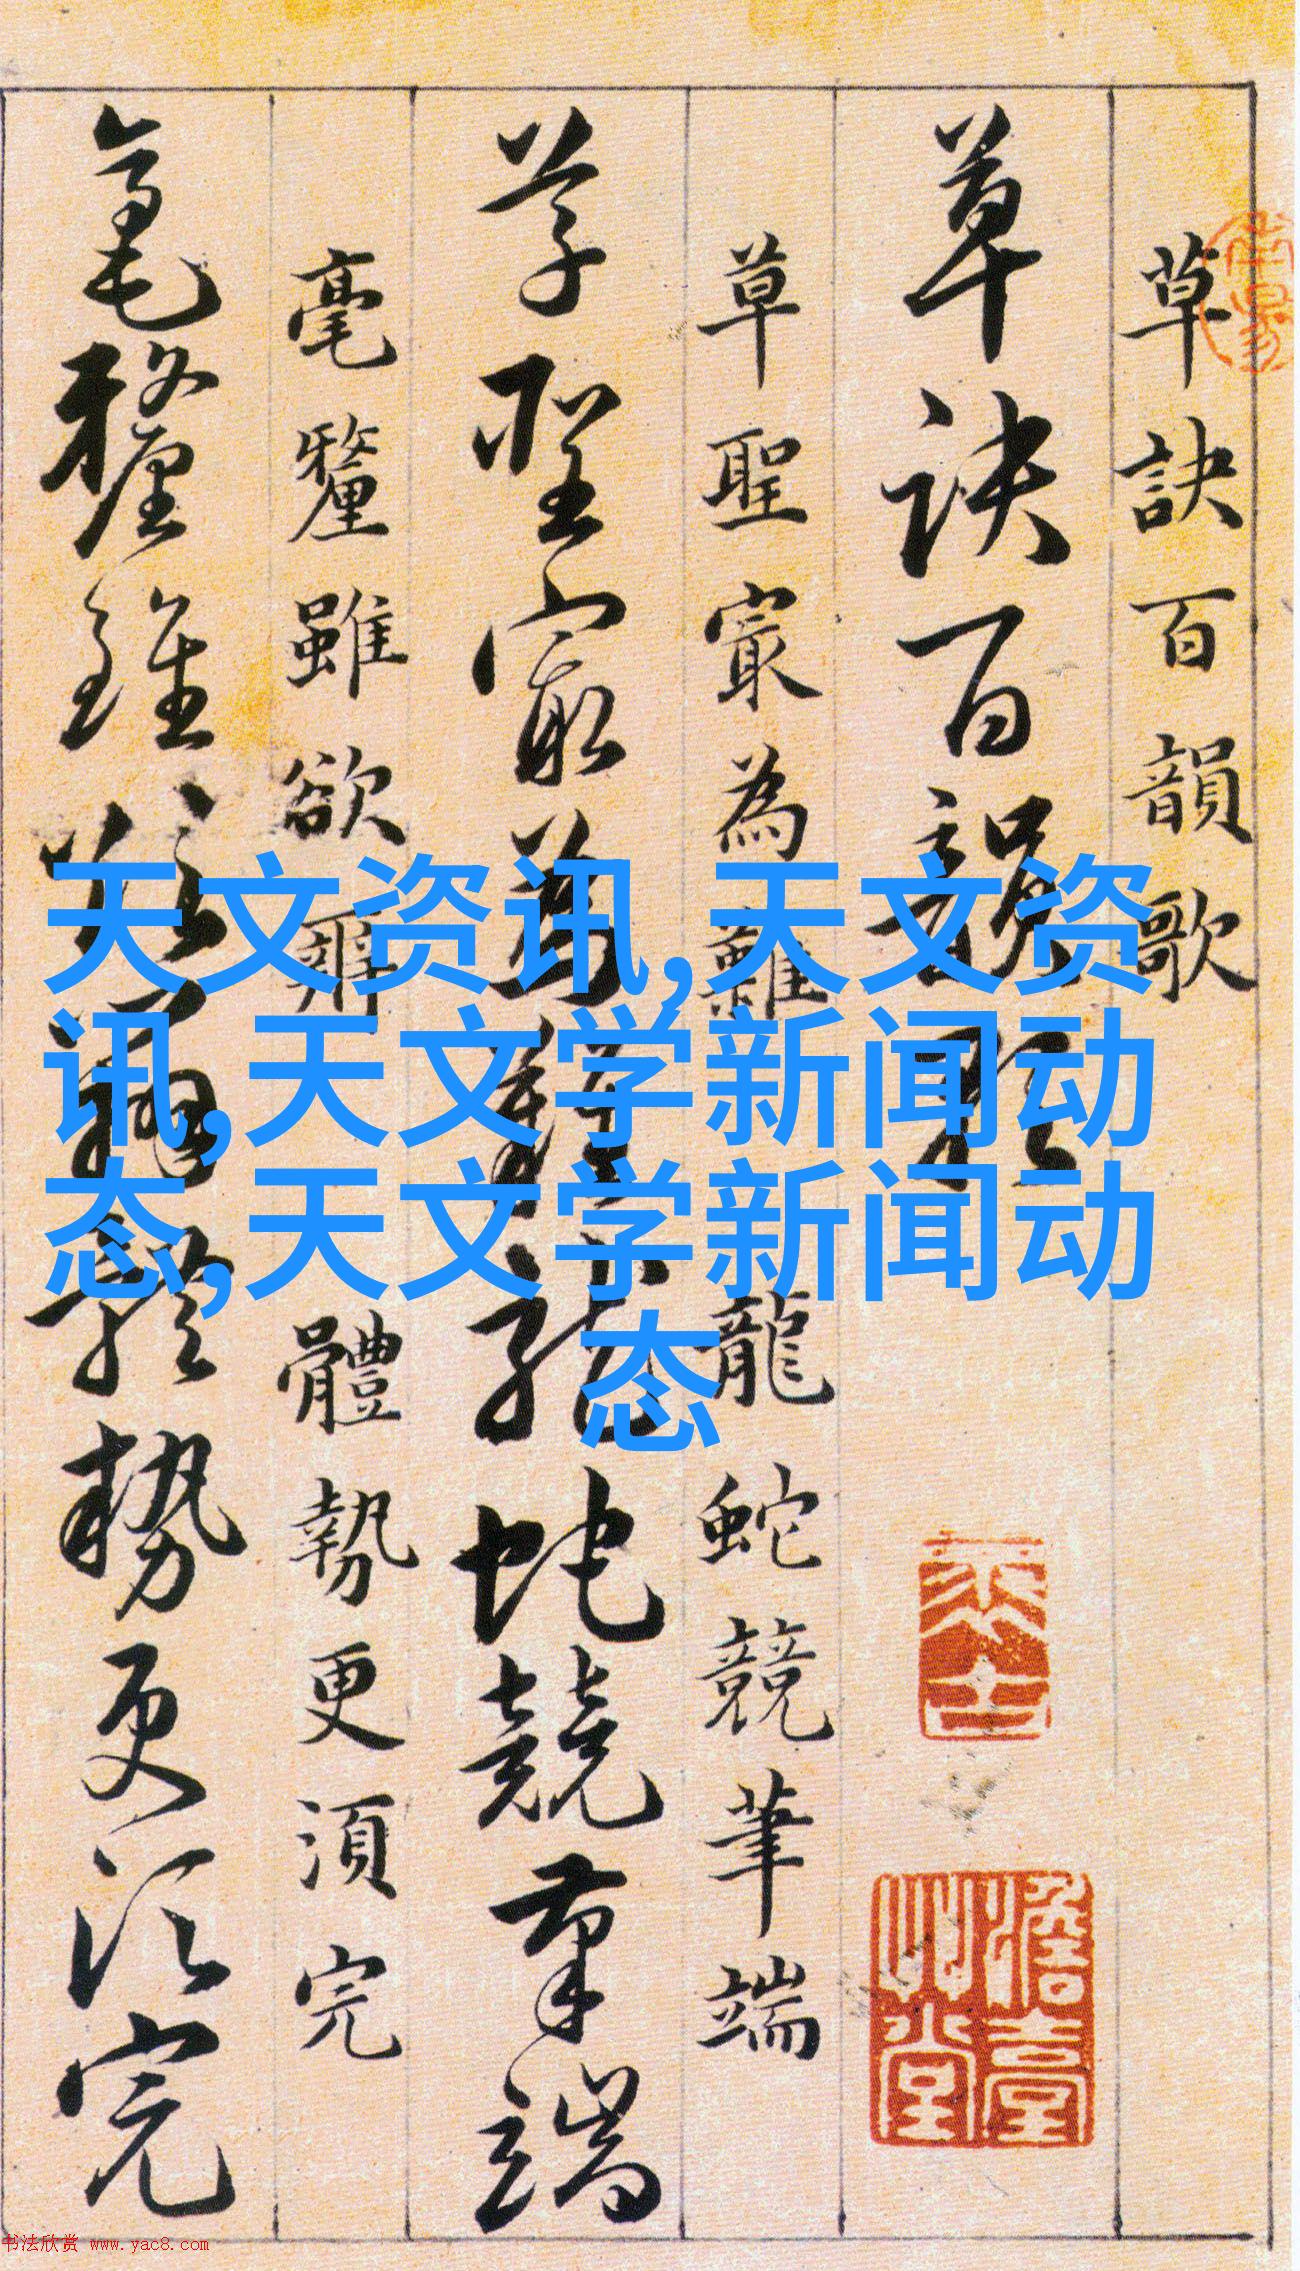 草訣百韻歌
草訣百韻歌
草聖寂為難 龍蛇競筆端
草聖寂為難龍蛇競筆端
毫釐雖欲辨 體勢更須完
毫釐雖欲辨體勢更須完
天文资讯,天文资
讯,天文学新闻动
态,天文学新闻动
态
书法欣赏 www.yac8.com